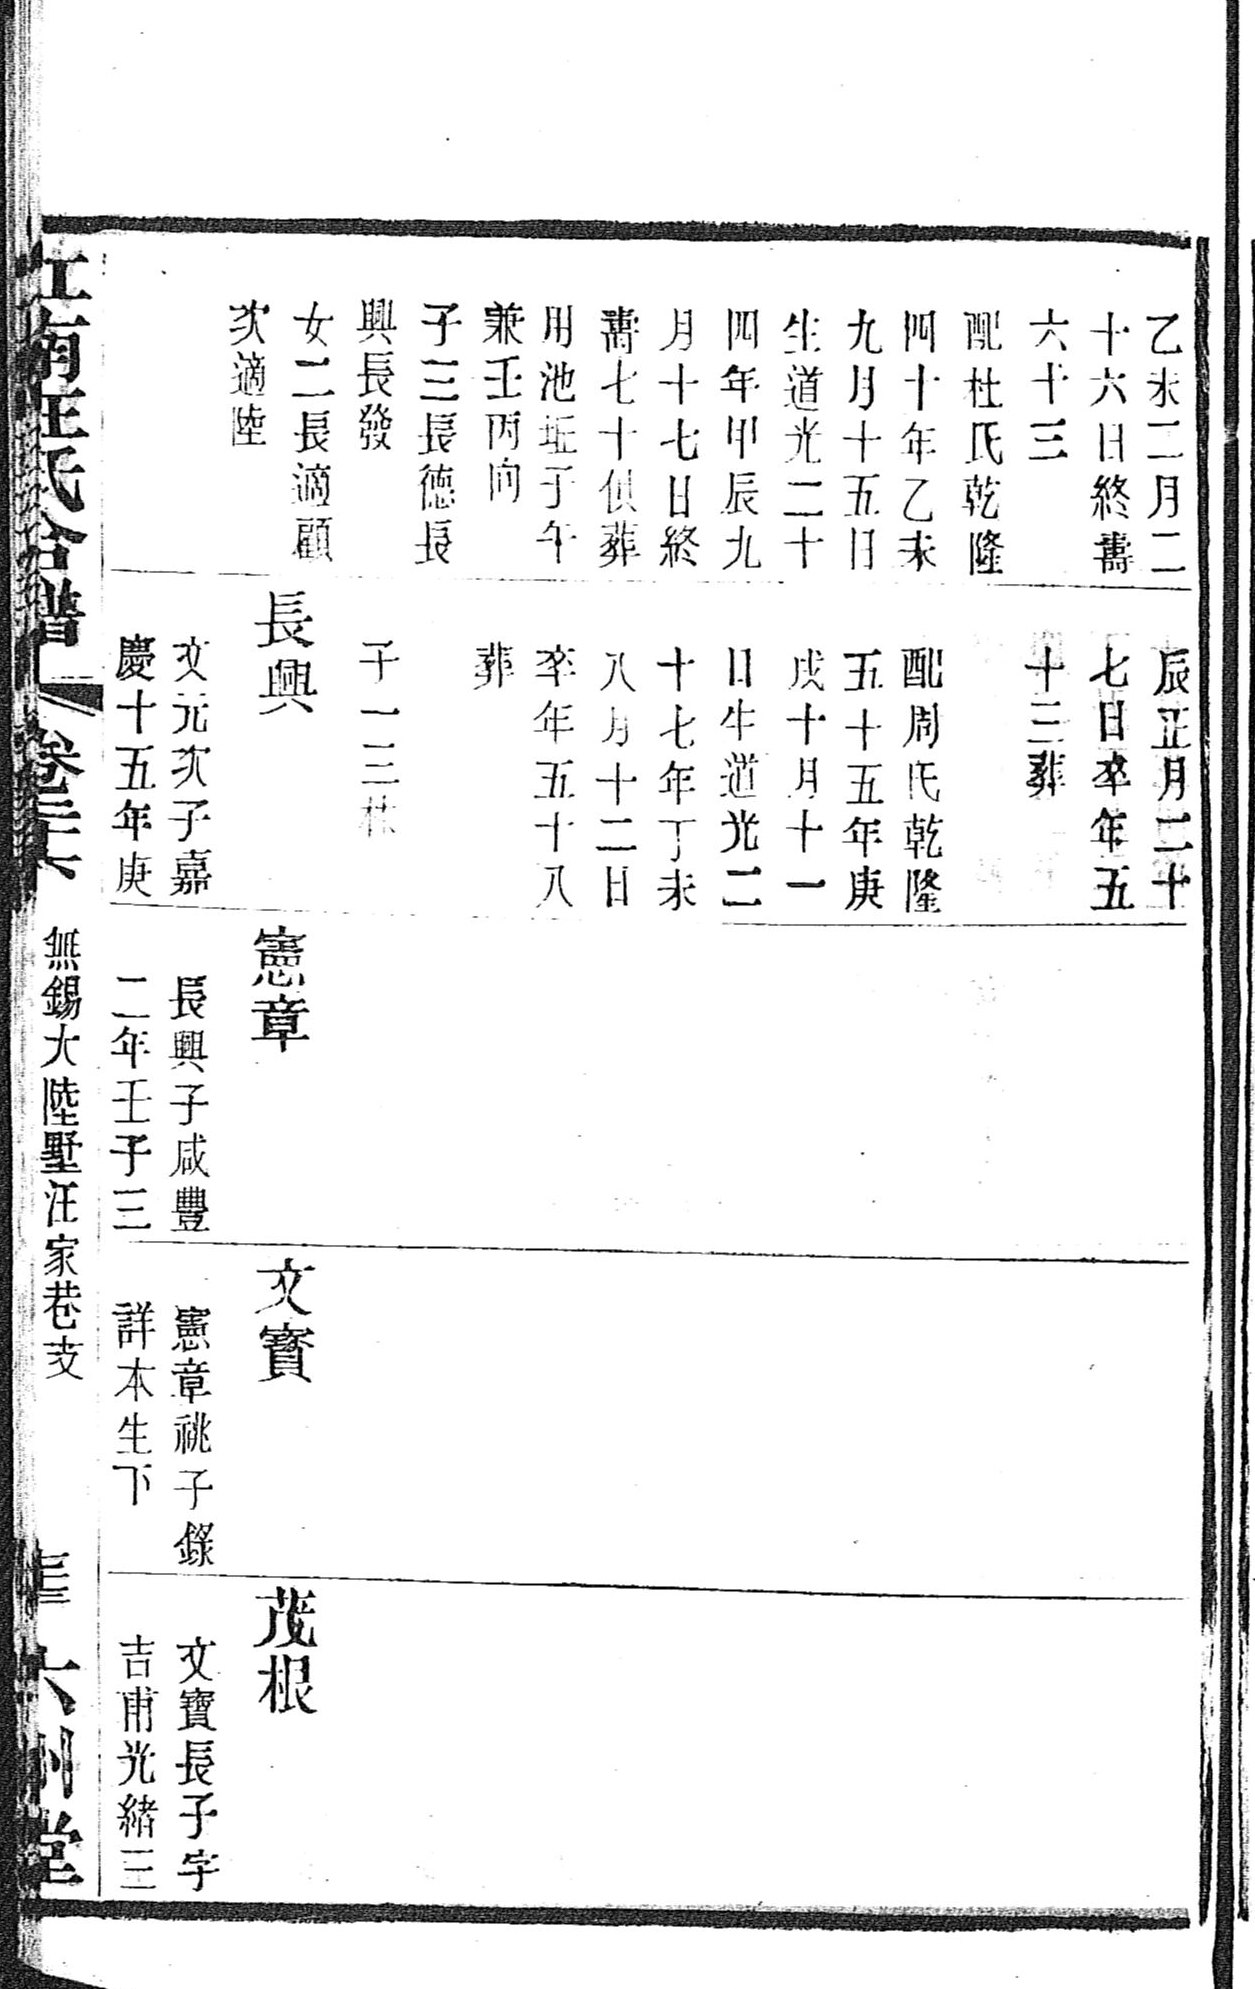 乙未二月二
十六日終壽
六十三
配杜氏乾隆
四十年乙未
九月十五日
生道光二十
四年甲辰九
月十七日終
壽七十俱葬
用池坵子午
兼壬丙向
子三長德長
興長發
女二長適顧
次適陸
辰正月二十
七日卒年五
十三葬
配周氏乾隆
五十五年庚
戌十月十一
日生道光二
十七年丁未
八月十二日
卒年五十八
葬
子一三桂
長興
文元次子嘉
慶十五年庚
憲章
長興子咸豐
二年壬子三
文寶
憲章祧子錄
詳本生下
茂根
文寶長子字
吉甫光緒三
江南汪氏合譜
卷三六
無錫大陸墅汪家巷支
六州堂